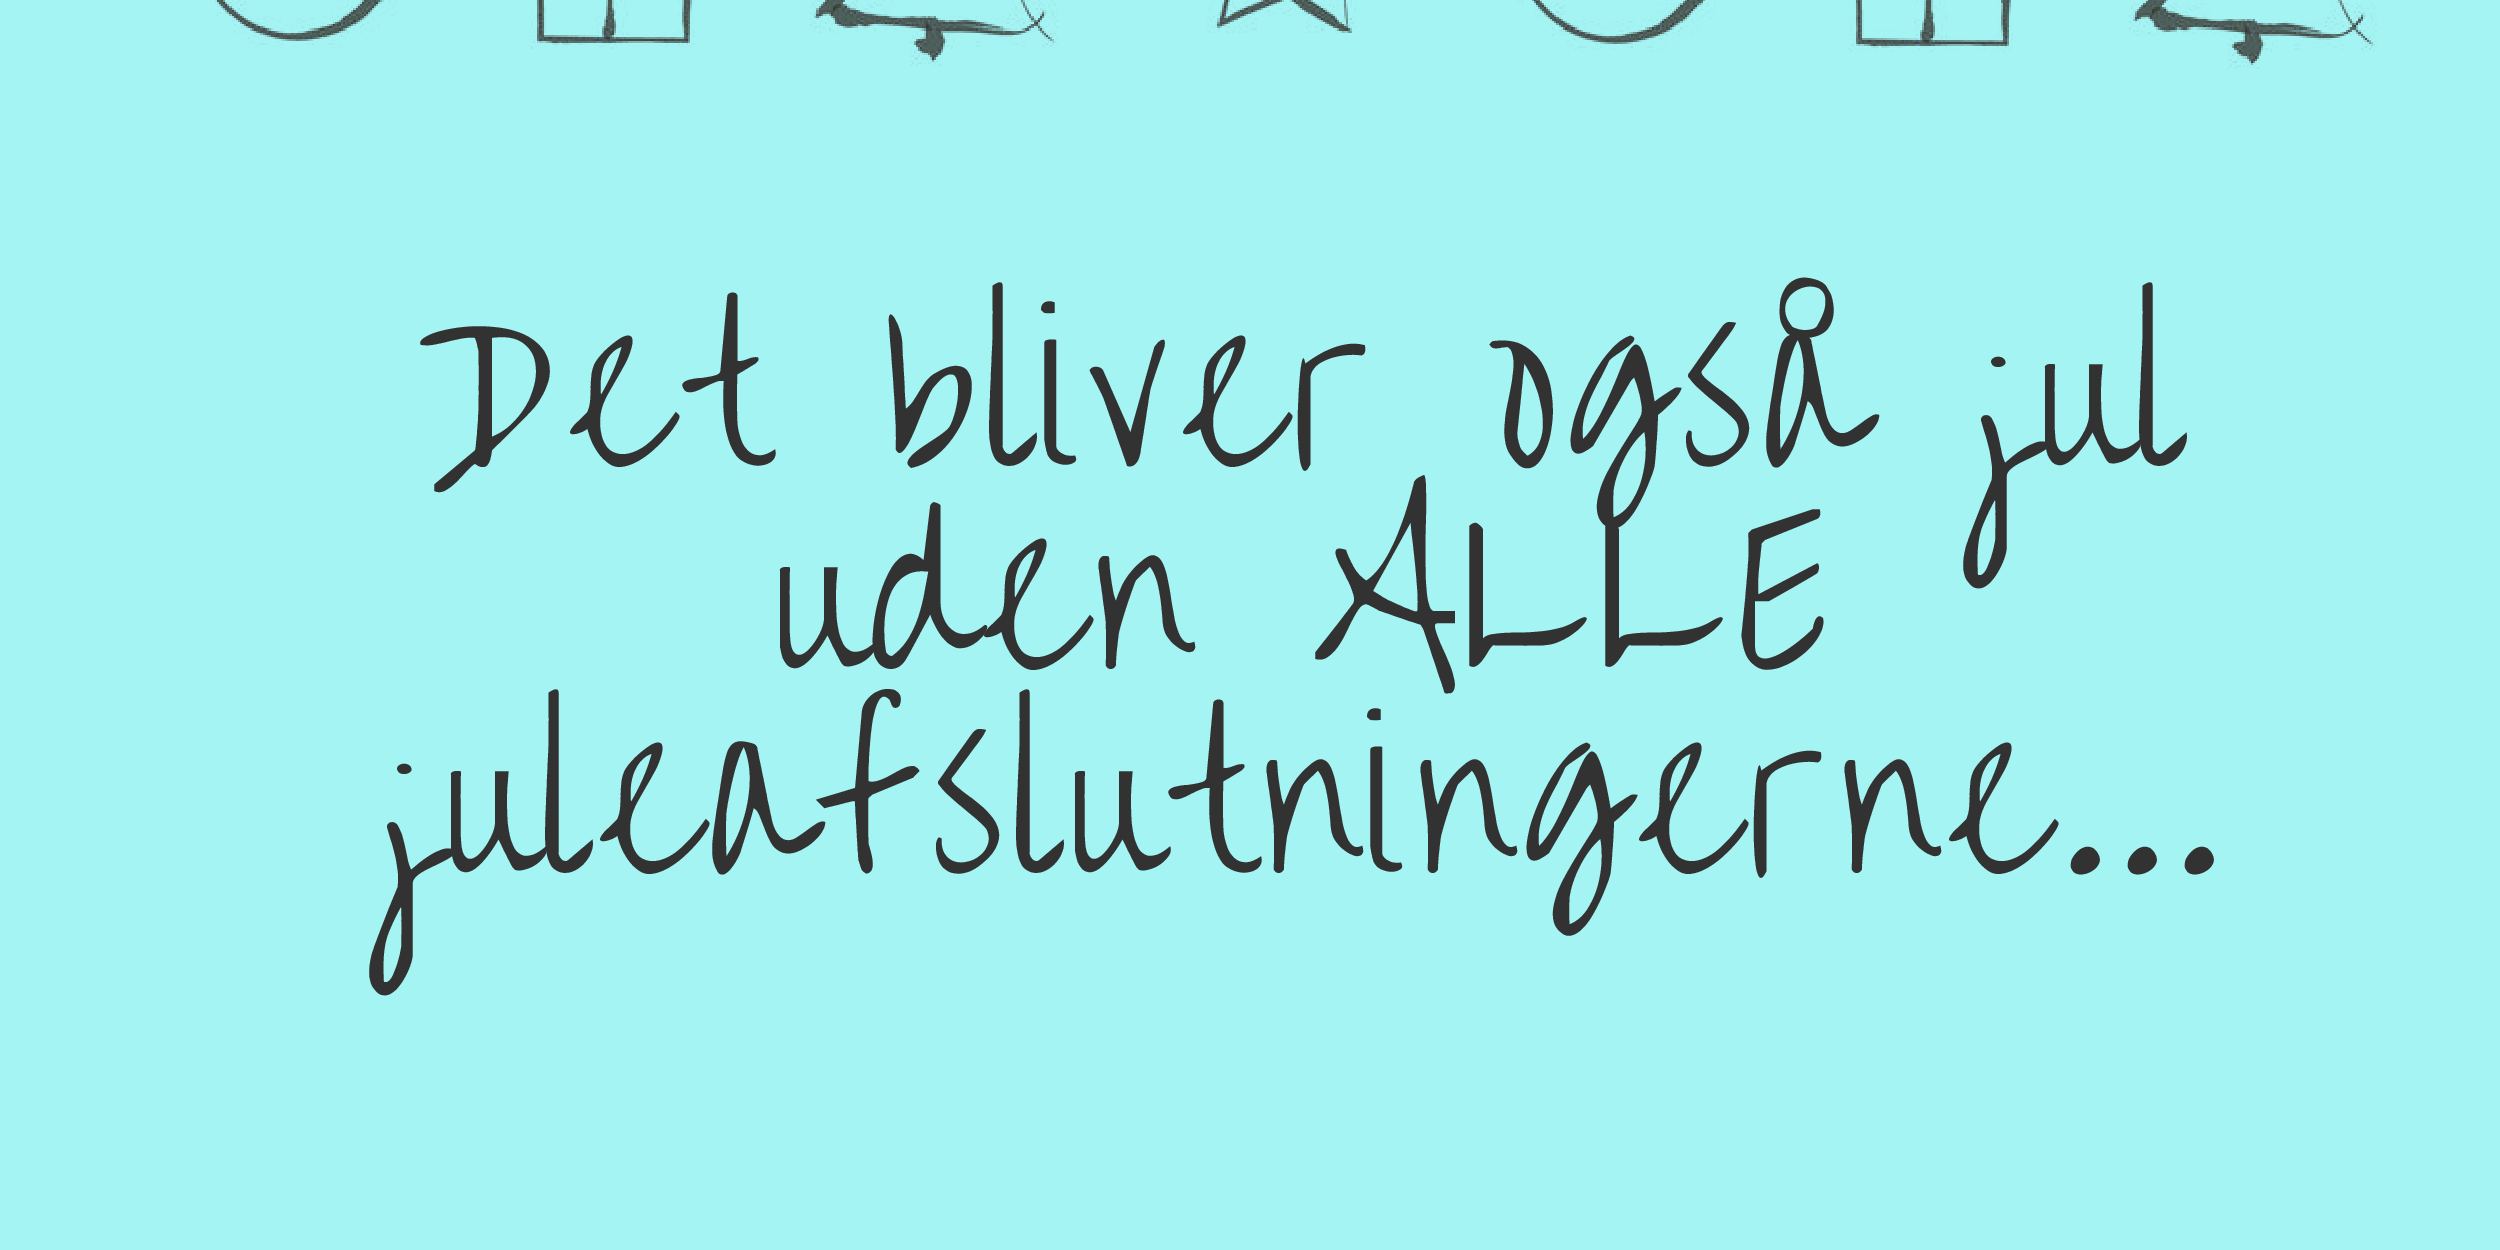 Det bliver også jul
uden ALLE
juleafslutningerne...